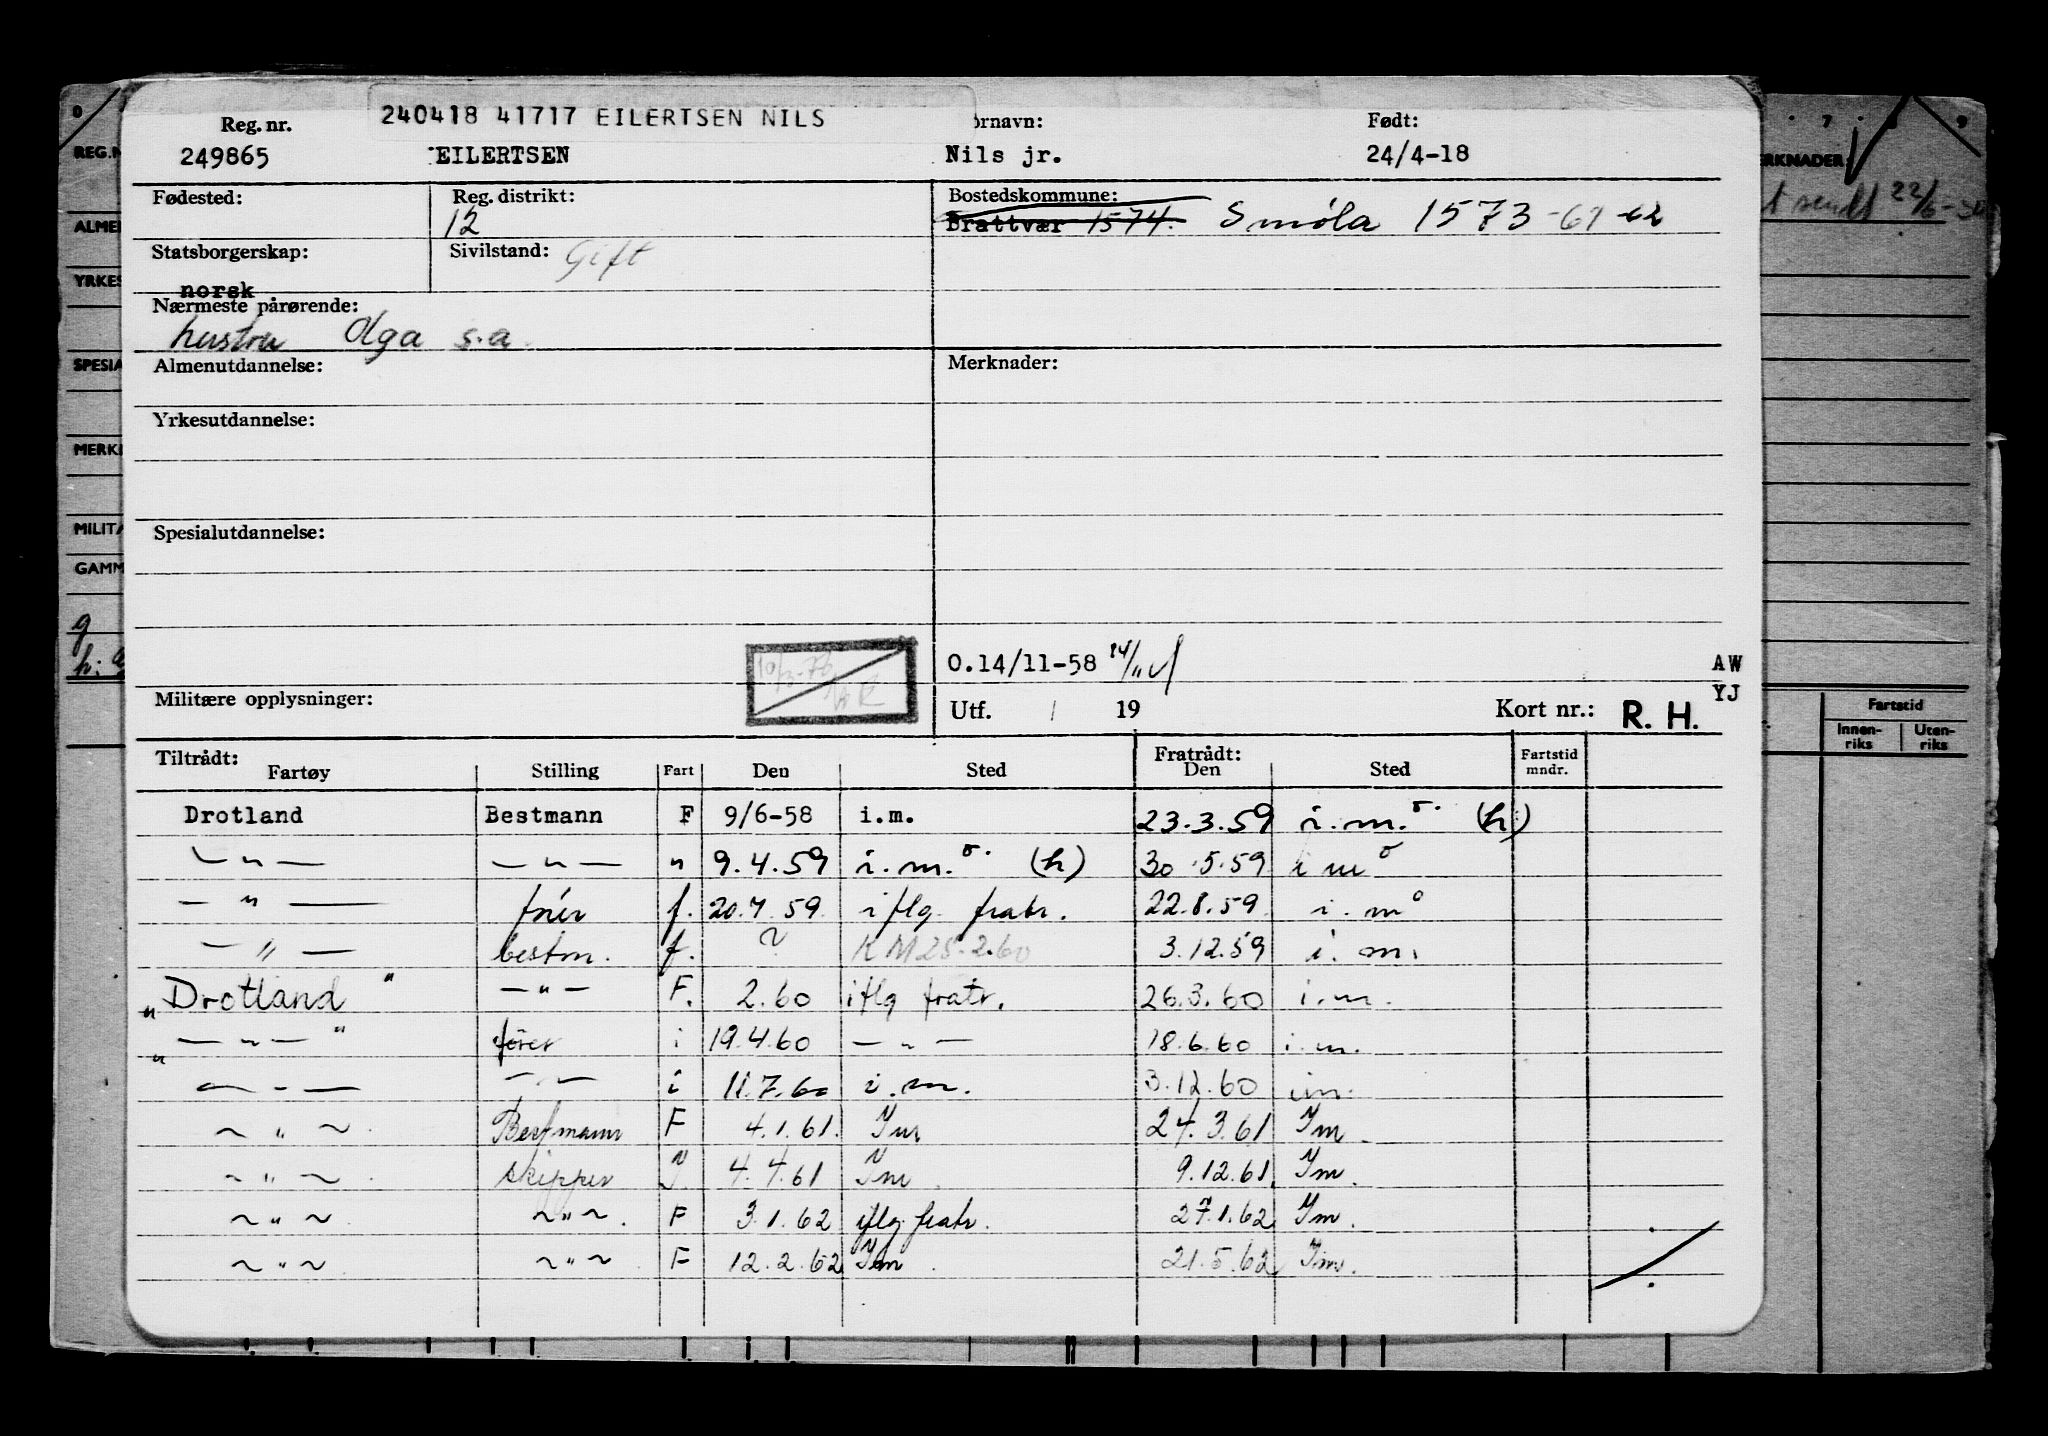 240418 41717 EILERTSEN NILS
Reg. nr. ornavn: Født:
249865 EILERTSEN Nils jr. 24/4-18
Fødested: Reg. distrikt: Bostedskommune:
12 Brattvær 1574. Smöla 1573 -61 -62
Statsborgerskap: Sivilstand: Gift
norsk
Nærmeste pårørende:
hustru Olga s.a.
Almenutdannelse: Merknader:
Yrkesutdannelse:
Spesialutdannelse:
10/3-76
O.14/11-58 14/11 AW
YJ
Militære opplysninger: Utf. / 19 Kort nr.: R. H.
Tiltrådt: Fratrådt: Fartstid
Fartøy Stilling Fart Den Sted Den Sted mndr.
Drotland Bestmann F 9/6-58 i.m. 23.3.59 i.m.o. (h)
— " — — " — " 9.4.59 i.m.o. (h) 30.5.59 i m o
— " — förer f. 20.7.59. iflg. fratr. 22.8.59. i.m o
— " — bestm. f. ? KM 25.2.60 3.12.59 i.m.
"Drotland" — " — F. 2.60 iflg fratr. 26.3.60 i.m.
"— " —" fører i 19.4.60 — " — 18.6.60 i.m.
— " — — " — i 11.7.60 i.m. 3.12.60 im.
~ " ~ Bestmann F 4.1.61. Im 24.3.61 Im.
~ " ~ skipper 4.4.61 Im. 9.12.61. Im.
~ " ~ ~ " ~. F 3.1.62 iflg. fratr. 27.1.62 Im.
~ " ~ ~ " ~ F 12.2.62 Im. 21.5.62 Im.
0 7 8 9
REG.N
ERKNADER:
t sendt 22/6-
ALMEN
YRKES
SPESIA
MERK
MILITÆ
GAMM
g
h:
Fartstid
Innen-
riks
Uten-
riks